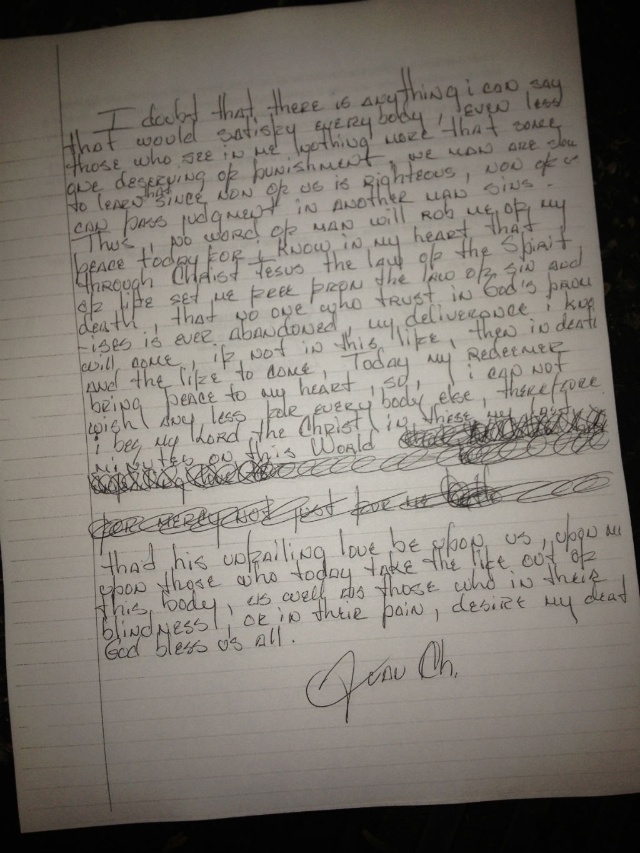 I doubt that there is anything i can say
that would satisfy everybody, even less
those who see in me nothing more that some
one deserving of punishment, we man are slow
to learn that since non of us is righteous, non of us
can pass judgment in another man sins.
Thus, no word of man will rob me of my
peace today for I know in my heart that
through Christ Jesus the law of the Spirit
of life set me free from the law of sin and
death, that no one who trust in God's prom
-ises is ever abandoned, my deliverance i know
will come, if not in this life, then in death
and the life to come, Today my Redeemer
bring peace to my heart, so, i can not
wish any less for every body else, therefore
i beg my Lord the Christ in these my last
minutes on this World
for mercy not just for me
thad his unfailing love be upon us, upon me
upon those who today take the life out of
this body, as well as those who in their
blindness, or in their pain, desire my deat
God bless us all.
Juan Ch.